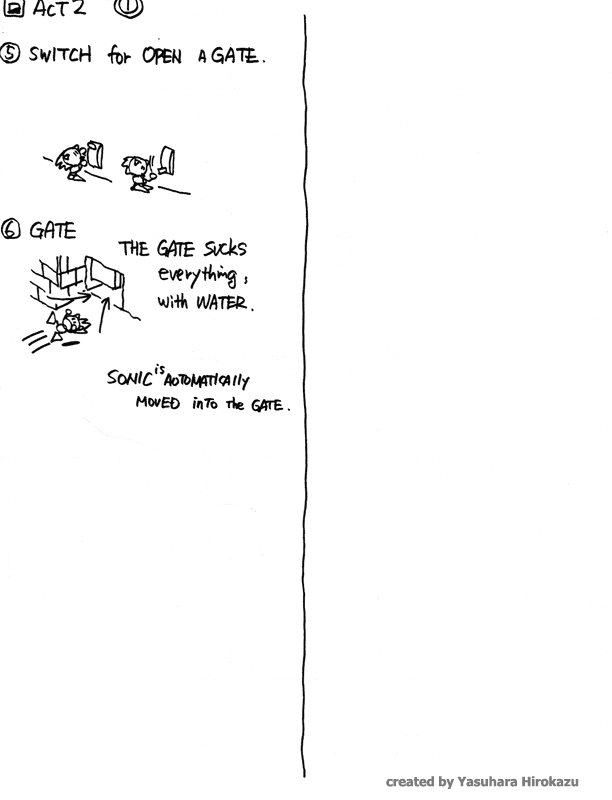 ACT 2 ①
⑤ SWITCH for OPEN A GATE.
⑥ GATE
THE GATE SUCKS
everything,
with WATER.
SONIC is AUTOMATICALLY
MOVED into the GATE.
created by Yasuhara Hirokazu